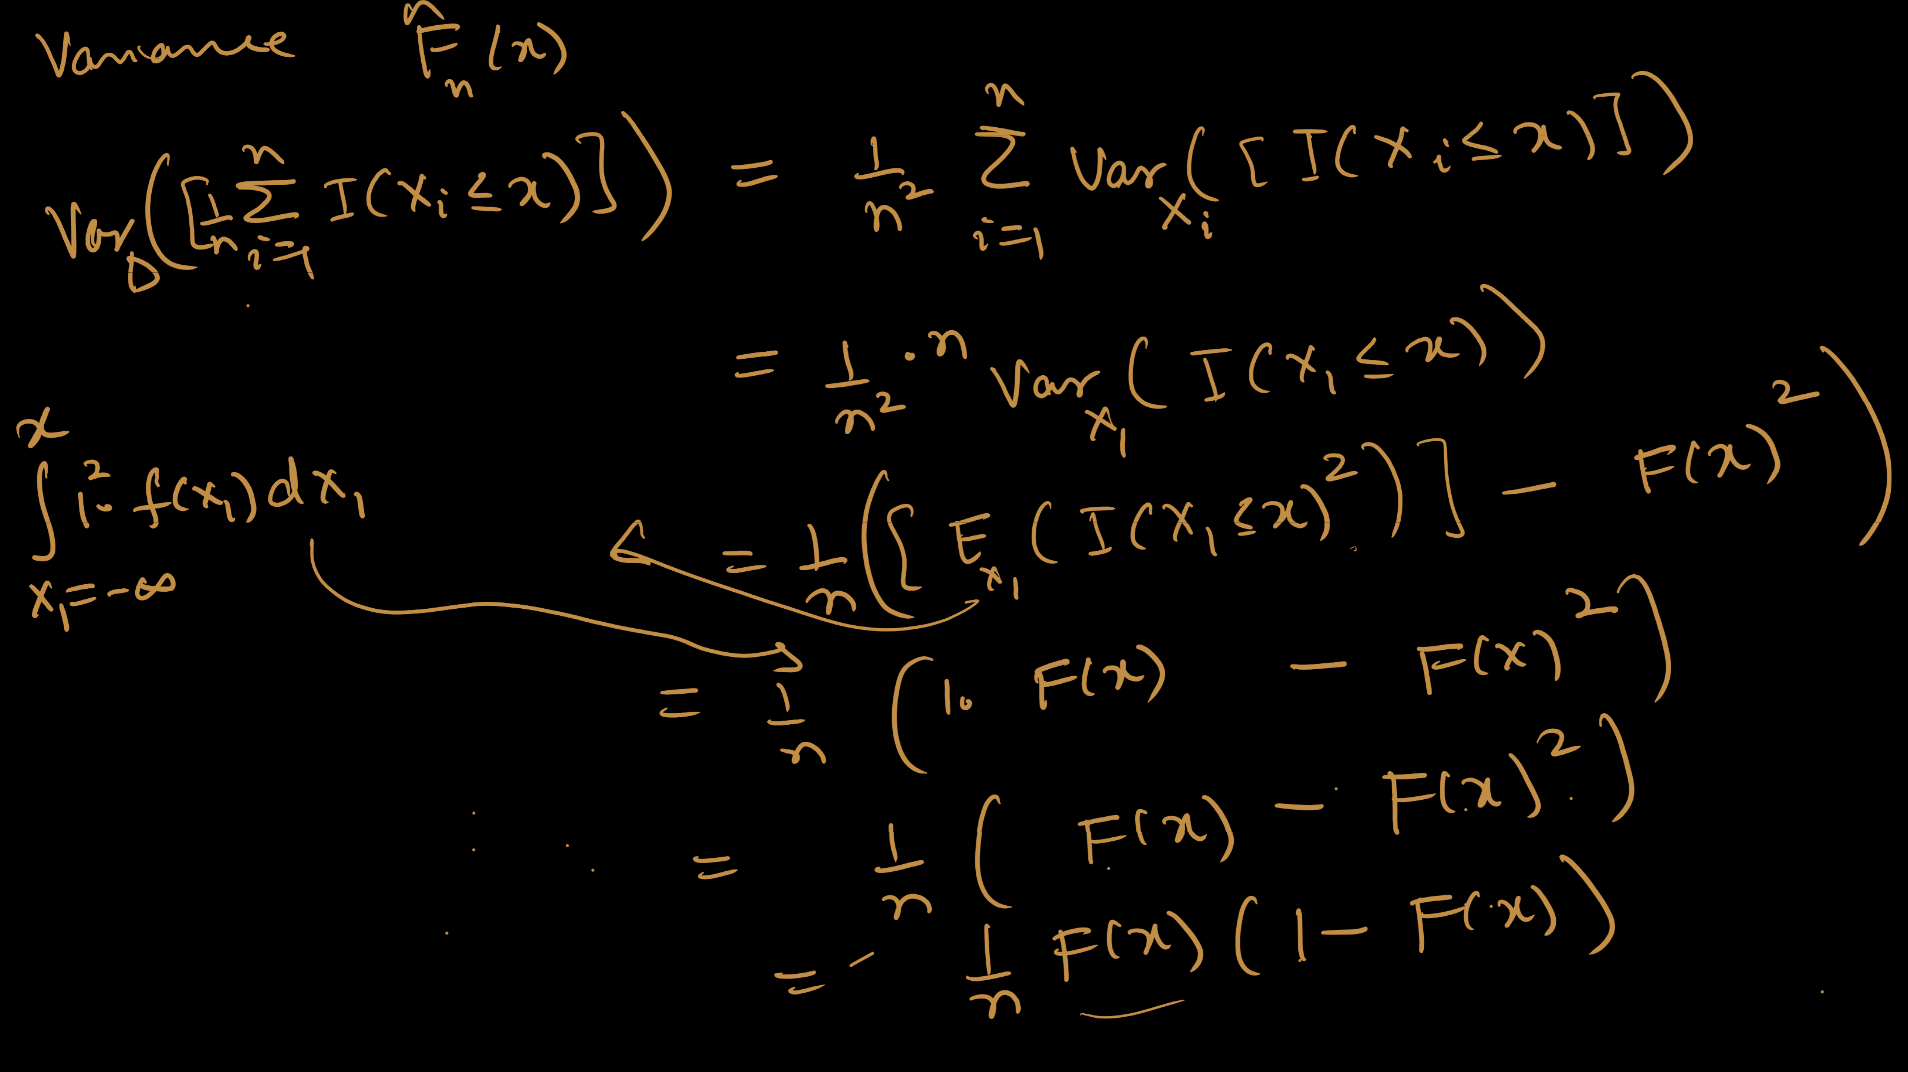 Variance F̂ₙ(x)
Var_D([1/n Σ_{i=1}^{n} I(Xᵢ ≤ x)]) = 1/n² Σ_{i=1}^{n} Var_{Xᵢ}([I(Xᵢ ≤ x)])
= 1/n² · n Var_{X₁}(I(X₁ ≤ x))
∫_{X₁=-∞}^{x} 1²· f(X₁) dX₁
= 1/n ([E_{X₁}(I(X₁ ≤ x)²)] − F(x)²)
= 1/n (1· F(x) − F(x)²)
= 1/n (F(x) − F(x)²)
= 1/n F(x) (1 − F(x))